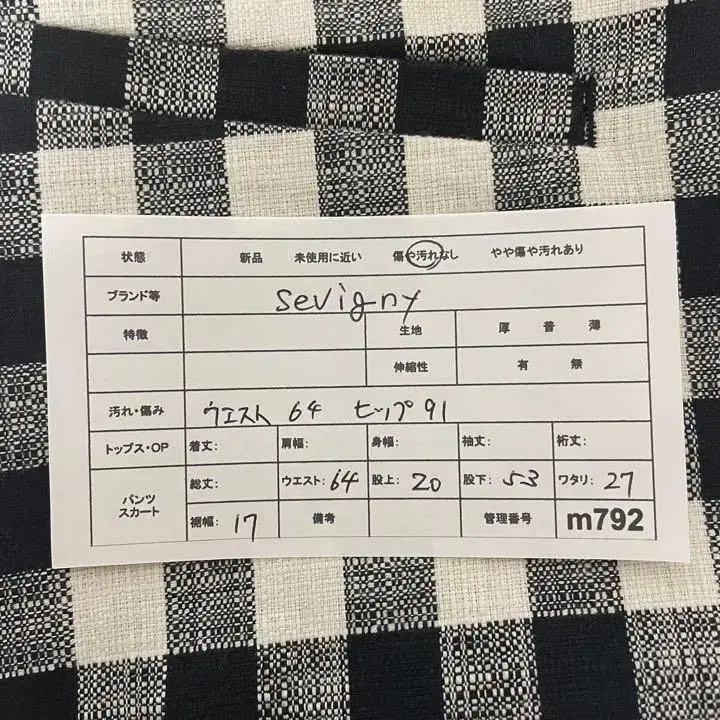 状態 新品 未使用に近い 傷や汚れなし やや傷や汚れあり
ブランド等 sevigny
特徴 生地 厚 普 薄
伸縮性 有 無
汚れ・傷み ウエスト 64 ヒップ 91
トップス・OP 着丈: 肩幅: 身幅: 袖丈: 裄丈:
パンツ スカート 総丈: ウエスト: 64 股上: 20 股下: 53 ワタリ: 27
裾幅: 17 備考 管理番号 m792